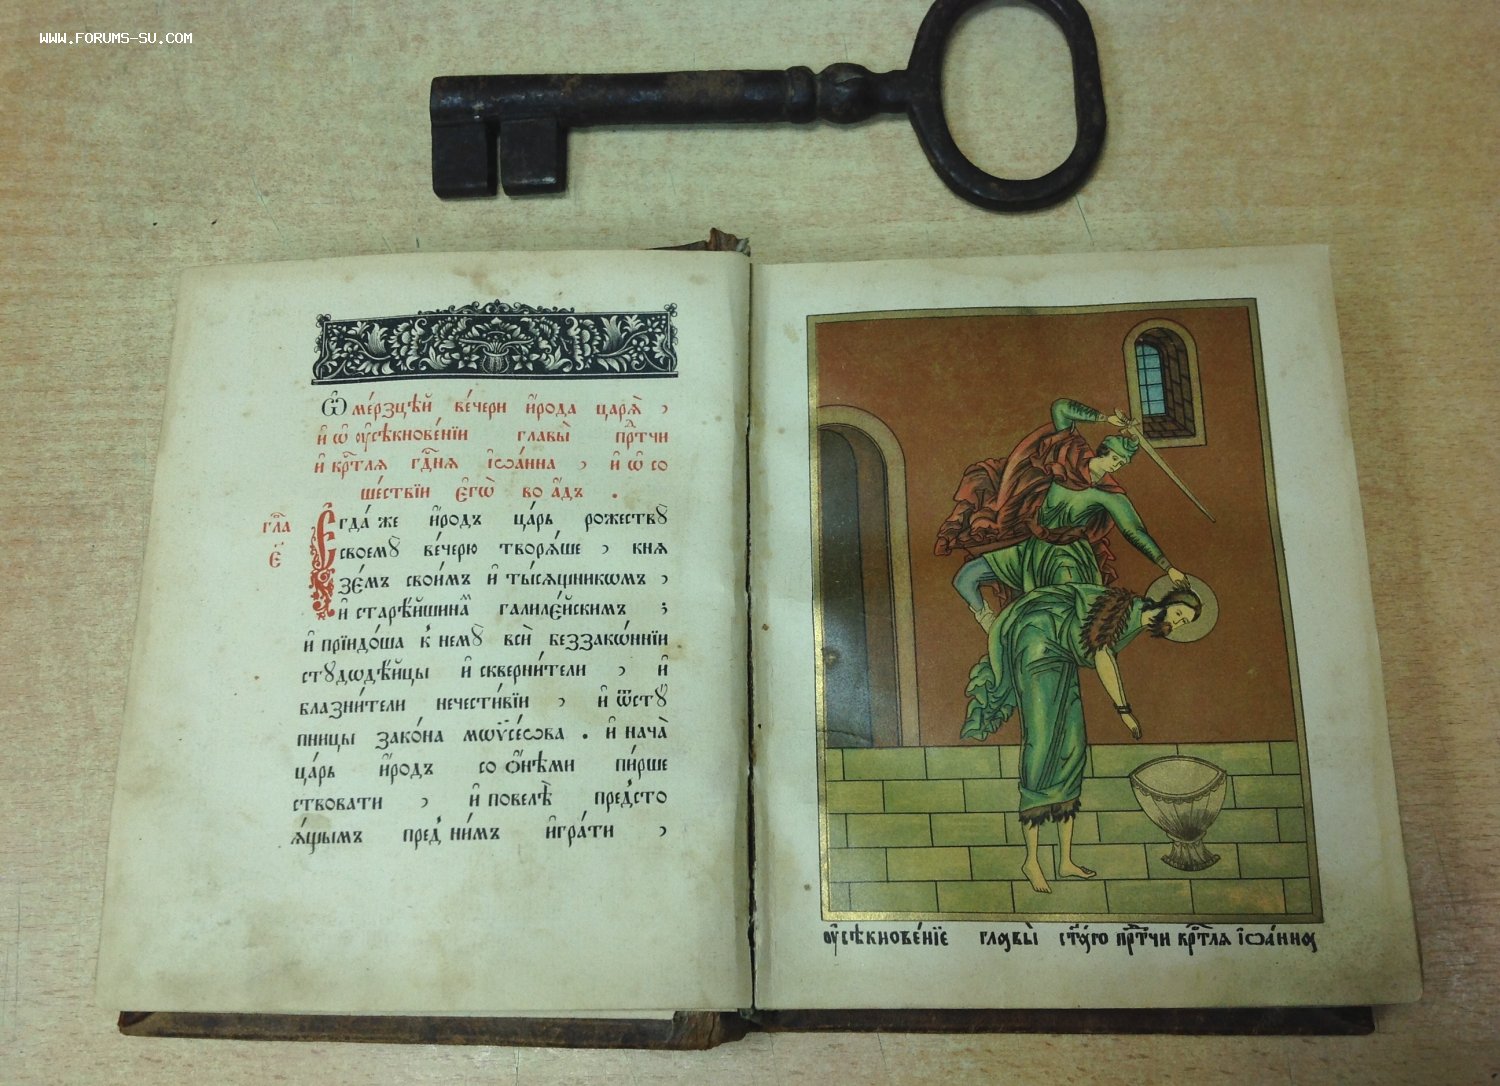 WWW.FORUMS-SU.COM
Ѽ ме́рзцѣй ве́чери и҆́рода царѧ̀ ,
и҆ ѡ҆ ᲂу҆сѣкнове́нїи главы̀ прⷣтчи
и҆ крⷭ҇тлѧ гдⷭ҇нѧ і҆ѡа́нна , и҆ ѡ҆ со
ше́ствїи є҆гѡ̀ во а҆́дъ .
гла́
є҃
Є҆гда́ же и҆́родъ ца́рь рожествꙋ̀
своемꙋ̀ ве́черю творѧ́ше , кнѧ
зе́мъ свои́мъ и҆ ты́сѧщникѡмъ ,
и҆ старѣ́йшинаⷨ галиле́йскимъ ;
и҆ прїидо́ша к̾ немꙋ̀ всѝ беззако́ннїи
стꙋдодѣ́йцы и҆ скверни́тели , и҆
блазни́тели нечести́вїи , и҆ ѿстꙋ́
пницы зако́на мѡѷсе́ѡва . и҆ нача̀
ца́рь и҆́родъ со ѻ҆нѣ́ми пи́рше
ствовати , и҆ повелѣ̀ пред̾сто
ѧ́щымъ пред̾ ни́мъ и҆гра́ти ,
ᲂу҆сѣкнове́нїе главы̀ ст҃а́го прⷣтчи крⷭ҇тлѧ і҆ѡа́нна